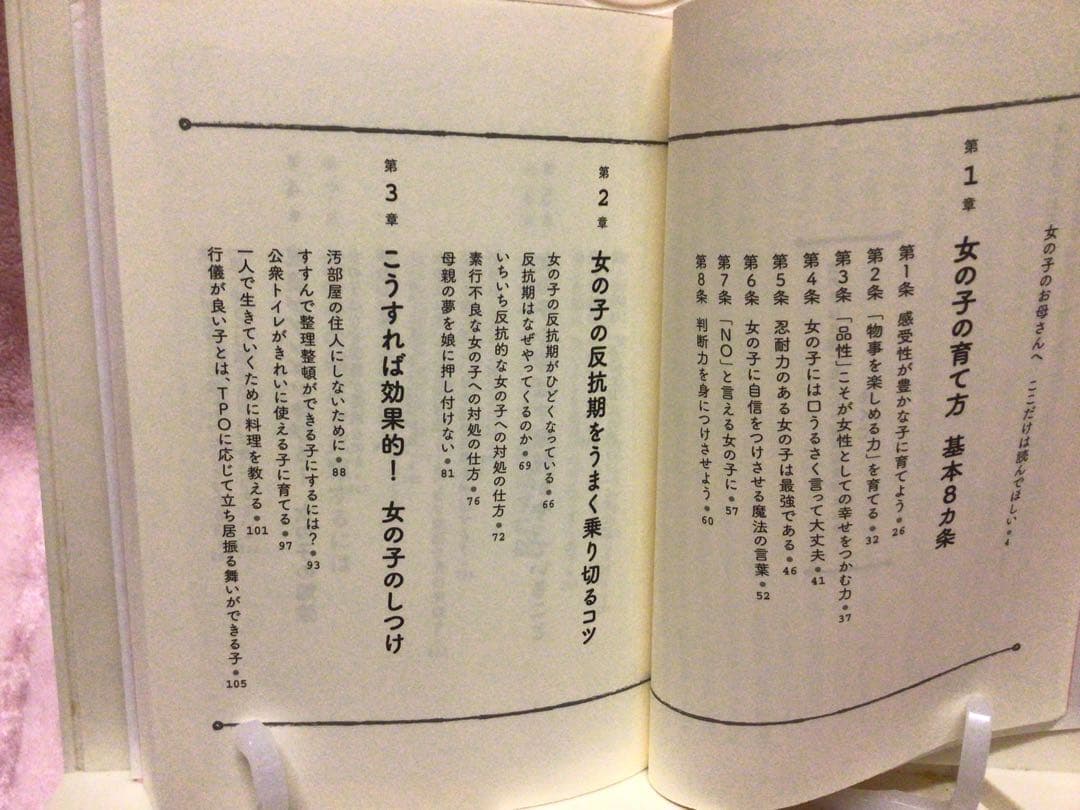 女の子のお母さんへ ここだけは読んでほしい●4
第1章 女の子の育て方 基本8カ条
第1条 感受性が豊かな子に育てよう●26
第2条 「物事を楽しめる力」を育てる●32
第3条 「品性」こそが女性としての幸せをつかむ力●37
第4条 女の子には口うるさく言って大丈夫●41
第5条 忍耐力のある女の子は最強である●46
第6条 女の子に自信をつけさせる魔法の言葉●52
第7条 「NO」と言える女の子に●57
第8条 判断力を身につけさせよう●60
第2章 女の子の反抗期をうまく乗り切るコツ
女の子の反抗期がひどくなっている●66
反抗期はなぜやってくるのか●69
いちいち反抗的な女の子への対処の仕方●72
素行不良な女の子への対処の仕方●76
母親の夢を娘に押し付けない●81
第3章 こうすれば効果的! 女の子のしつけ
汚部屋の住人にしないために●88
すすんで整理整頓ができる子にするには?●93
公衆トイレがきれいに使える子に育てる●97
一人で生きていくために料理を教える●101
行儀が良い子とは、TPOに応じて立ち居振る舞いができる子●105